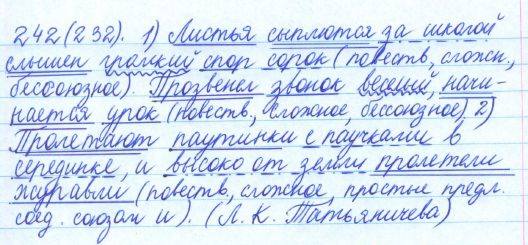 242(232). 1) Листья сыплются за школой
слышен громкий спор сорок (повесть, сложн.,
бессоюзное). Прозвенел звонок веселый, начи-
нается урок (повесть, сложное, бессоюзное) 2)
Пролетают паутинки с паучками в
серединке, и высоко от земли пролетели
журавли (повеств, сложное, простые предл.
соед. союзом и). (Л. К. Татьяничева)